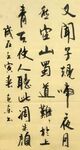 又聞子規啼夜月
愁空山蜀道難於上
青天使人聽此凋朱顏
歲在壬寅